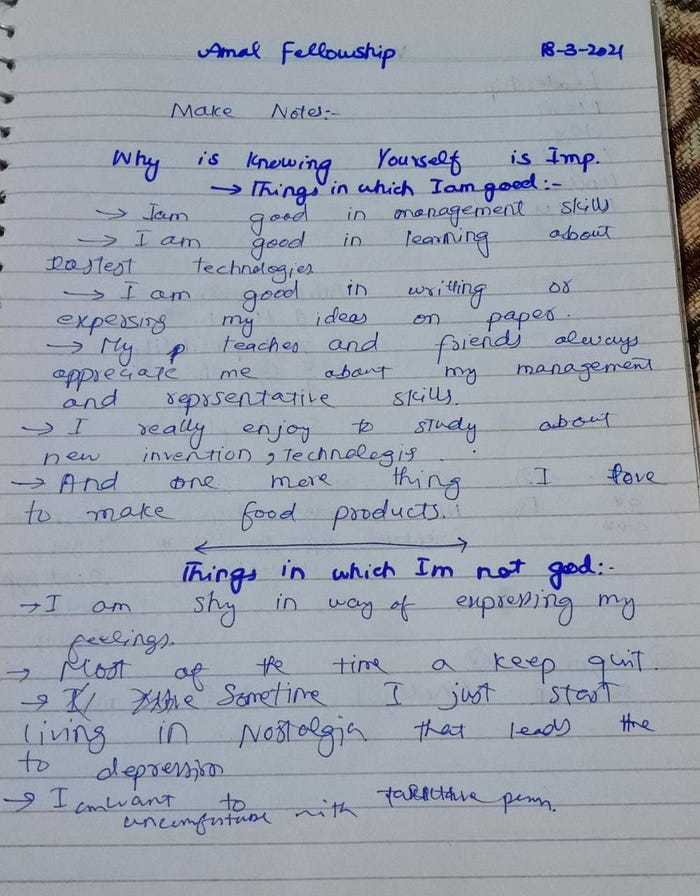 Amal Fellowship 18-3-2021
Make Notes:-
Why is Knowing Yourself is Imp.
→ Things in which I am good:-
→ I am good in management skills
→ I am good in learning about
lastest technologies
→ I am good in writting or
expersing my ideas on paper.
→ My teaches and friends always
appreciate me about my management
and reprsentative skills.
→ I really enjoy to study about
new invention, technologis
→ And one more thing I love
to make food products.
Things in which Im not good:-
→ I am shy in way of expressing my
feelings.
→ Most of the time a keep quit.
→ Sometime I just start
living in Nostalgia that leads the
to depression
→ I to
with